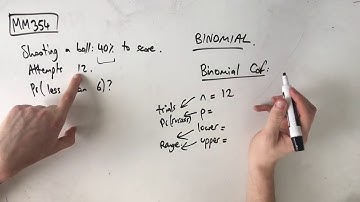 MM354
Shooting a ball: 40% to score.
Attempts 12.
Pr( less 6)?
BINOMIAL.
Binomial Cdf:
trials n = 12
Pr(success) p =
lower =
Range upper =